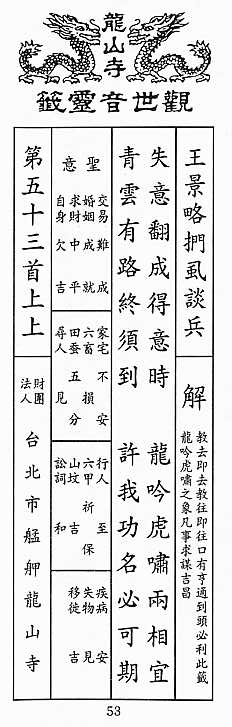 龍山寺
觀世音靈籤
王景略捫虱談兵
解
教去即去教往即往口有亨通到頭必利此籤
龍吟虎嘯之象凡事求謀吉昌
失意翻成得意時 龍吟虎嘯兩相宜
青雲有路終須到 許我功名必可期
聖意
交易難成
婚姻成就
求財中平
自身欠吉
家宅不安
六畜損
田蚕五分
尋人見
行人至
六甲祈保
山坟吉
訟詞和
疾病安
失物見
移徙吉
第五十三首上上
財團法人
台北市艋舺龍山寺
53